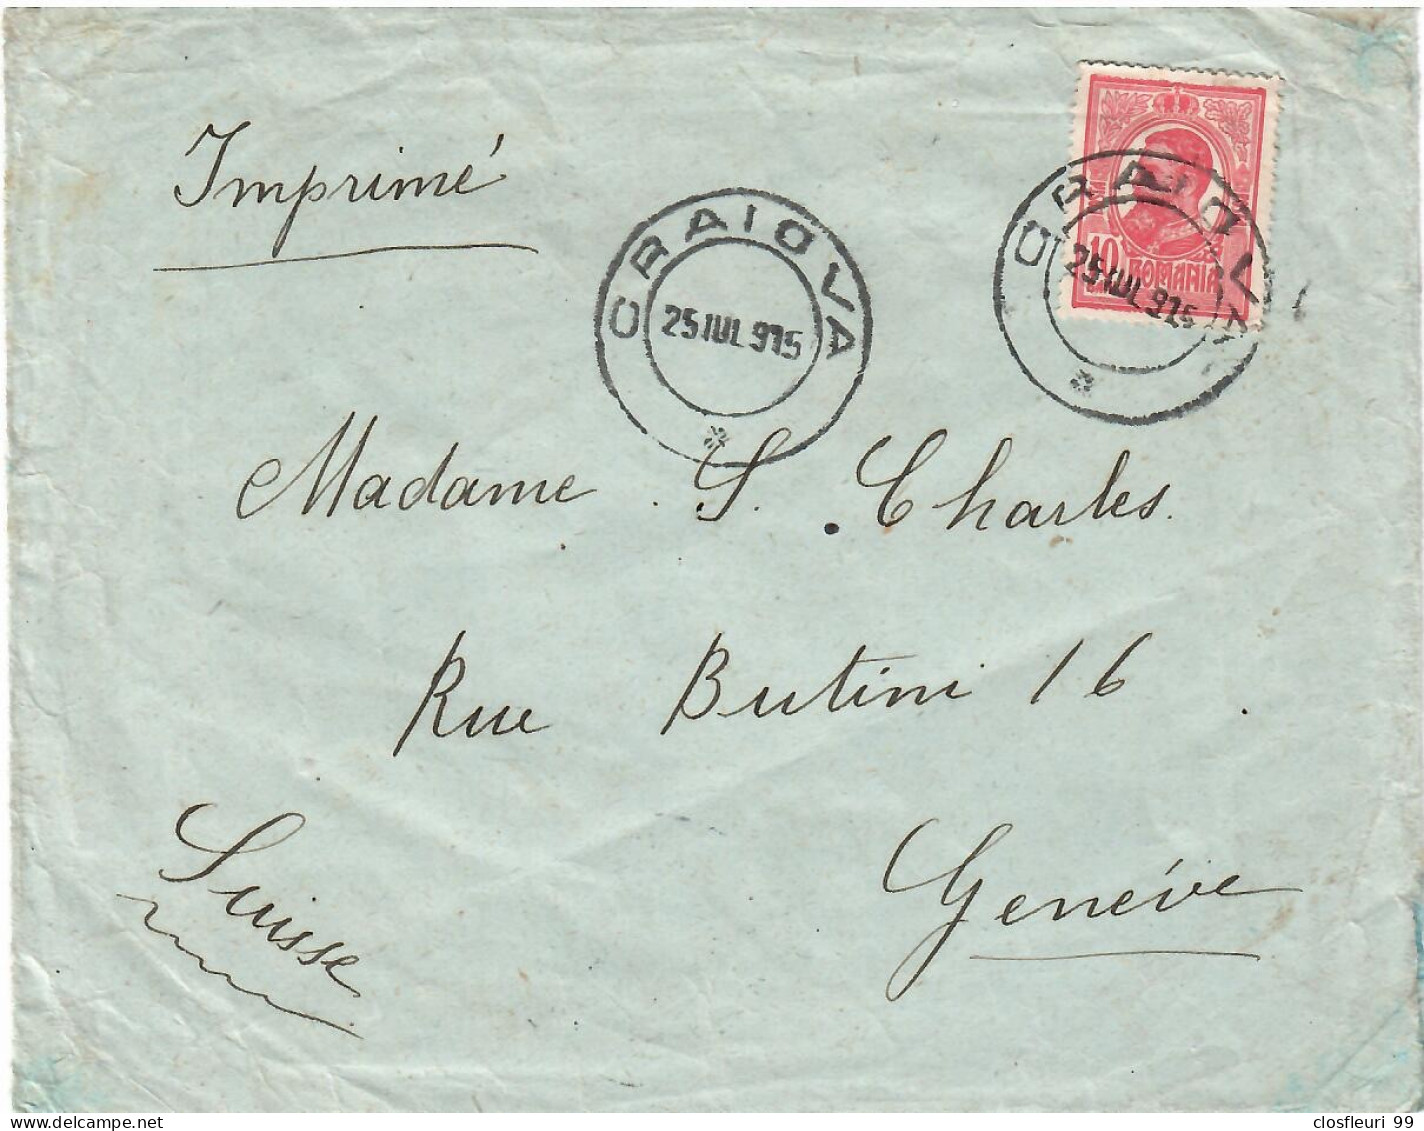 Imprimé
CRAIOVA
25 IUL 915
CRAIOVA
25 IUL 915
10
ROMANIA
Madame S. Charles.
Rue Butini 16
Genéve
Suisse
closfleuri 99